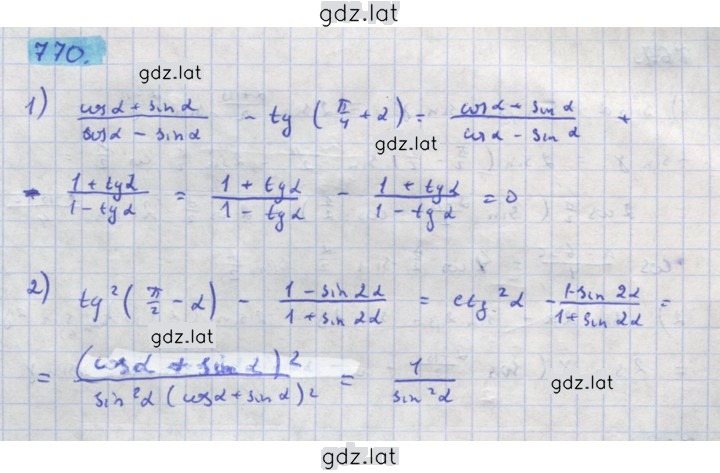 gdz.lat
770.
gdz.lat
1) (cosα + sinα)/(cosα − sinα) − tg(π/4 + α) = (cosα + sinα)/(cosα − sinα) +
gdz.lat
− (1 + tgα)/(1 − tgα) = (1 + tgα)/(1 − tgα) − (1 + tgα)/(1 − tgα) = 0
2) tg²(π/2 − α) − (1 − sin 2α)/(1 + sin 2α) = ctg²α − (1 − sin 2α)/(1 + sin 2α) =
gdz.lat
= (cosα + sin α)²/(sin²α (cosα + sin α)²) = 1/(sin²α)
gdz.lat
gdz.lat